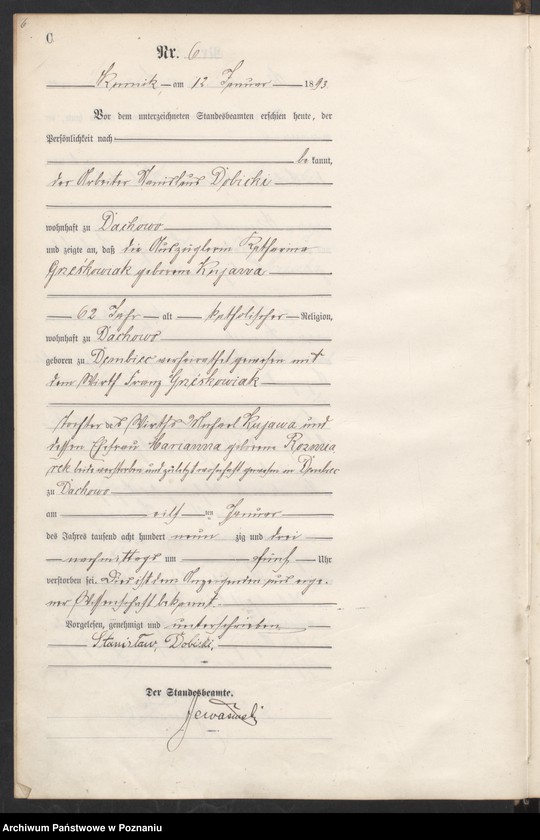 6
C
Nr. 6
Kurnik am 12 Januar 1893
Vor dem unterzeichneten Standesbeamten erschien heute, der
Persönlichkeit nach
be kannt,
der Arbeiter Stanislaus Dobicki
wohnhaft zu Dachowo
und zeigte an, daß die Auszüglerin Katharina
Grześkowiak geborene Kujawa
62 Jahr alt katholischer Religion,
wohnhaft zu Dachowo
geboren zu Dembiec verheirathet gewesen mit
dem Wirth Franz Grześkowiak
Tochter des Wirths Michael Kujawa und
dessen Ehefrau Marianna geborene
beide verstorben und zuletzt wohnhaft gewesen in Dembiec
zu Dachowo
am eilf ten Januar
des Jahres tausend acht hundert neun zig und drei
nachmittags um fünf Uhr
verstorben sei. Dies ist dem Anzeigenden aus eige-
ner Wissenschaft bekannt.
Vorgelesen, genehmigt und unterschrieben
Stanisław Dobicki,
Der Standesbeamte.
Archiwum Państwowe w Poznaniu